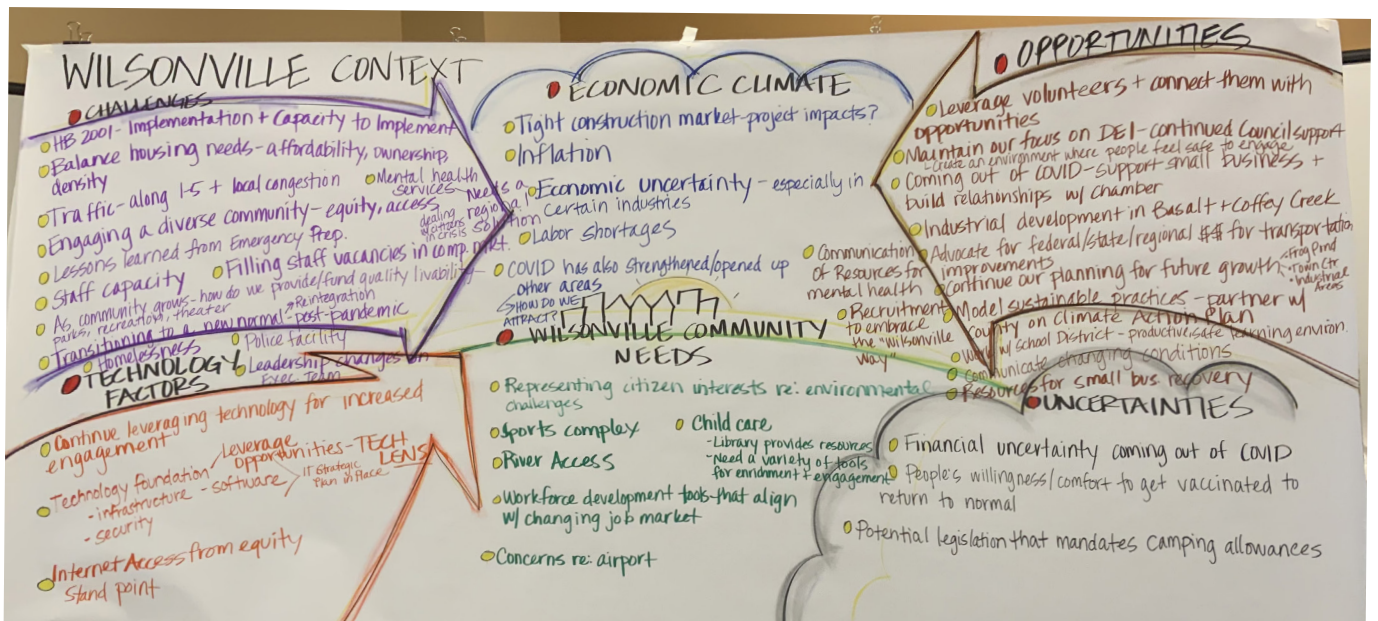 WILSONVILLE CONTEXT
CHALLENGES
HB 2001- Implementation + Capacity to Implement
Balance housing needs-affordability, ownership,
density
Traffic-along I-5 + local congestion
Mental health
services
Needs a
regional
solution
dealing
w/citizens
in crisis
Engaging a diverse community-equity, access
Lessons learned from Emergency Prep.
Staff capacity
Filling staff vacancies in comp. mkt.
As community grows-how do we provide/fund quality livability-
parks, recreation, theater
Reintegration
Transitioning to a new normal-post-pandemic
Homelessness
Police facility
Leadership changes on
Exec. Team
ECONOMIC CLIMATE
Tight construction market-project impacts?
Inflation
Economic uncertainty - especially in
certain industries
Labor shortages
COVID has also strengthened/opened up
other areas
HOW DO WE
ATTRACT?
OPPORTUNITIES
Leverage volunteers + connect them with
opportunities
Maintain our focus on DEI-continued Council support
-create an environment where people feel safe to engage
Coming out of COVID-support small business +
build relationships w/ chamber
Industrial development in Basalt + Coffey Creek
Advocate for federal/state/regional $$ for transportation
improvements
Continue our planning for future growth
• Frog Pond
• Town Ctr
• Industrial
Areas
Model sustainable practices - partner w/
County on Climate Action Plan
Work w/ School District - productive, safe learning environ.
Communicate changing conditions
Resources for small bus recovery
Communication
of Resources for
mental health
Recruitment
to embrace
the "Wilsonville
Way"
TECHNOLOGY
FACTORS
Continue leveraging technology for increased
engagement
Technology foundation
- infrastructure - software
- security
Leverage
opportunities-TECH
LENS
IT Strategic
Plan in Place
Internet Access from equity
stand point
WILSONVILLE COMMUNITY
NEEDS
Representing citizen interests re: environmental
challenges
Sports complex
River Access
Workforce development tools-that align
w/ changing job market
Concerns re: airport
Child care
-Library provides resources
-Need a variety of tools
for enrichment + engagement
UNCERTAINTIES
Financial uncertainty coming out of COVID
People's willingness/comfort to get vaccinated to
return to normal
Potential legislation that mandates camping allowances